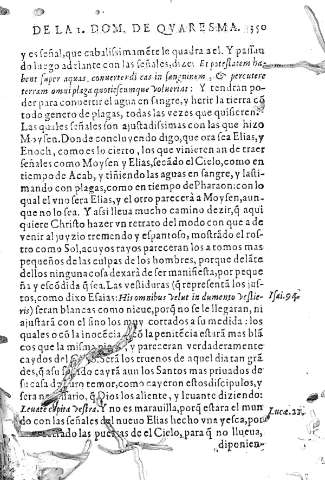 DE LA 1. DOM. DE QVARESMA. 350
y es señal, que cabalissimamẽte le quadra a el. Y passan
do luego adelante con las señales, dize: Et potestatem ha
bent super aquas, conuertendi eas in sanguinem, & percutere
terram omni plaga quotiescunque voluerint: Y tendran po
der para conuertir el agua en sangre, y herir la tierra cõ
todo genero de plagas, todas las vezes que quisieren?
Las quales señales son ajustadissimas con las que hizo
Moysen. Donde concluyendo digo, que ora sea Elias, y
Enoch, como es lo cierto, los que vinieren an de traer
señales como Moysen y Elias, secãdo el Cielo, como en
tiempo de Acab, y tiñendo las aguas en sangre, y lasti-
mando con plagas, como en tiempo de Pharaon: con lo
qual el vno sera Elias, y el otro parecerà a Moysen, aun-
que no lo sea. Y assi lleua mucho camino dezir, q̃ aqui
quiere Christo hazer vn retrato del modo con que a de
venir al juyzio tremendo y espantoso, mostrãdo el ros-
tro como Sol, a cuyos rayos pareceran los atomos mas
pequeños de las culpas de los hombres, porque delãte
dellos ninguna cosa dexarà de ser manifiesta, por peque
ña y escõdida q̃ sea. Las vestiduras (q̃ representã los jus-
tos, como dixo Esaias: His omnibus velut indumento vestie-
ris) seran blancas como nieue, porq̃ no se le llegaran, ni
ajustarà con el sino los muy cortados a su medida: los
quales o cõ la inocẽcia, o cõ la penitẽcia estarã mas blã
cos que la misma nieue, y pareceran verdaderamente
caydos del Cielo. Serà los truenos de aquel dia tan gran
des, q̃ a su sonido cayrã aun los Santos mas priuados de
su casa de puro temor, como cayeron estos discipulos, y
sera necessario, q̃ Dios los aliente, y leuante diziendo:
Leuate capita vestra. Y no es marauilla, porq̃ estara el mun
do con las señales del nueuo Elias hecho vna yesca, por
cerrado las puertas de el Cielo, para q̃ no llueua,
diponien-
Isai. 49.
Lucæ. 21.